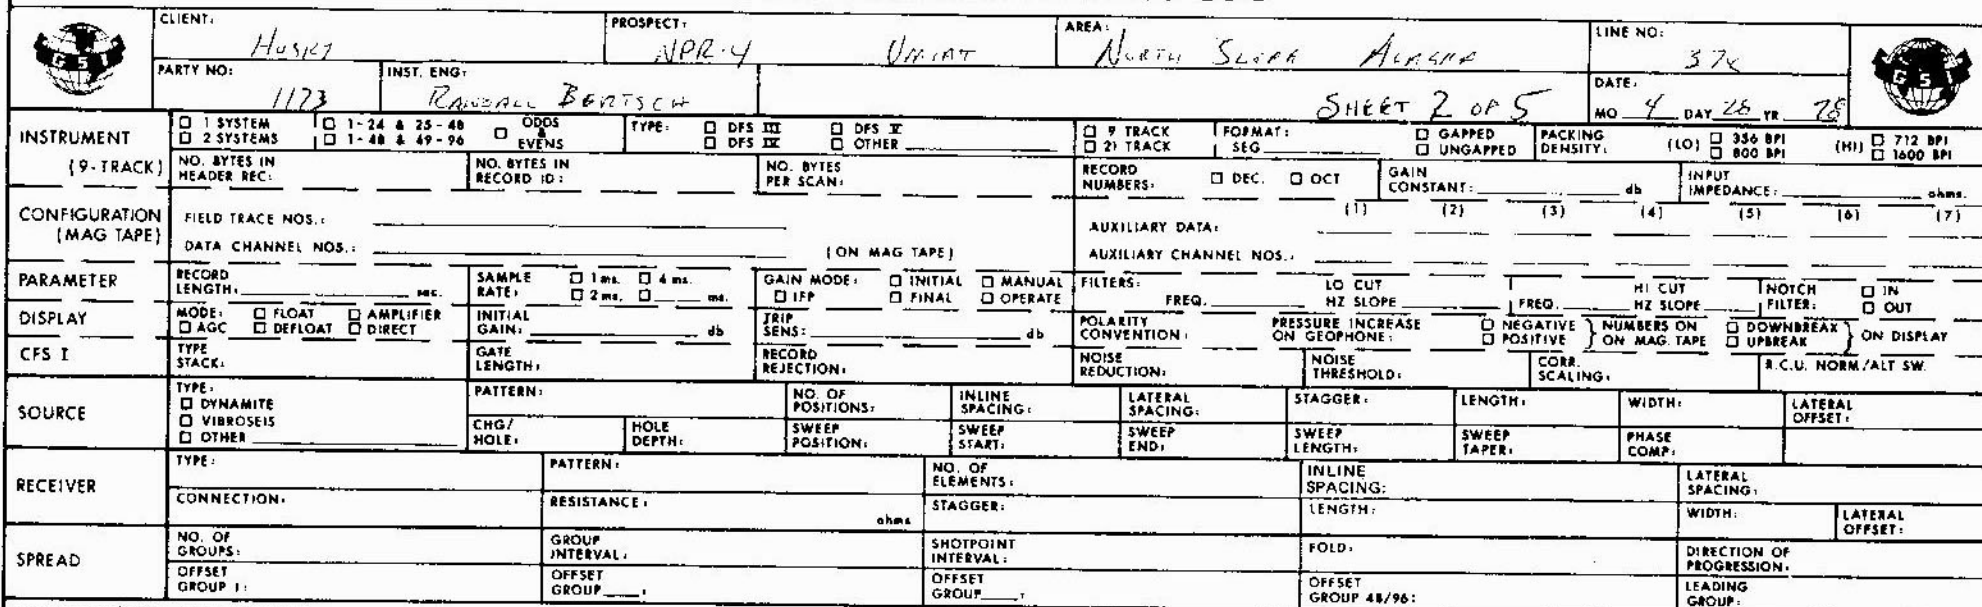 CLIENT: Husky PROSPECT: NPR-4 Umiat AREA: North Slope Alaska LINE NO: 37X
GSI
PARTY NO: 1173 INST. ENG: Randall Bertsch SHEET 2 OF 5 DATE: MO 4 DAY 28 YR 78
GSI
INSTRUMENT (9-TRACK)
1 SYSTEM 1-24 & 25-48 ODDS & EVENS TYPE: DFS III DFS V 9 TRACK FORMAT: GAPPED PACKING DENSITY: (LO) 356 BPI (HI) 712 BPI
2 SYSTEMS 1-48 & 49-96 DFS IV OTHER 21 TRACK SEG UNGAPPED 800 BPI 1600 BPI
NO. BYTES IN HEADER REC: NO. BYTES IN RECORD ID: NO. BYTES PER SCAN: RECORD NUMBERS: DEC. OCT GAIN CONSTANT: db INPUT IMPEDANCE: ohms.
CONFIGURATION (MAG TAPE)
(1) (2) (3) (4) (5) (6) (7)
FIELD TRACE NOS.: AUXILIARY DATA:
DATA CHANNEL NOS.: (ON MAG TAPE) AUXILIARY CHANNEL NOS.:
PARAMETER RECORD LENGTH: sec. SAMPLE RATE: 1 ms. 4 ms. 2 ms. ms. GAIN MODE: INITIAL MANUAL IFP FINAL OPERATE FILTERS: FREQ. LO CUT HZ SLOPE FREQ. HI CUT HZ SLOPE NOTCH FILTER: IN OUT
DISPLAY MODE: FLOAT AMPLIFIER AGC DEFLOAT DIRECT INITIAL GAIN: db TRIP SENS: db POLARITY CONVENTION: PRESSURE INCREASE ON GEOPHONE: NEGATIVE POSITIVE NUMBERS ON ON MAG. TAPE DOWNBREAK UPBREAK ON DISPLAY
CFS I TYPE STACK: GATE LENGTH: RECORD REJECTION: NOISE REDUCTION: NOISE THRESHOLD: CORR. SCALING: R.C.U. NORM/ALT SW.
SOURCE
TYPE: DYNAMITE VIBROSEIS OTHER
PATTERN: NO. OF POSITIONS: INLINE SPACING: LATERAL SPACING: STAGGER: LENGTH: WIDTH: LATERAL OFFSET:
CHG/HOLE: HOLE DEPTH: SWEEP POSITION: SWEEP START: SWEEP END: SWEEP LENGTH: SWEEP TAPER: PHASE COMP:
RECEIVER
TYPE: PATTERN: NO. OF ELEMENTS: INLINE SPACING: LATERAL SPACING:
CONNECTION: RESISTANCE: ohms STAGGER: LENGTH: WIDTH: LATERAL OFFSET:
SPREAD
NO. OF GROUPS: GROUP INTERVAL: SHOTPOINT INTERVAL: FOLD: DIRECTION OF PROGRESSION:
OFFSET GROUP 1: OFFSET GROUP : OFFSET GROUP : OFFSET GROUP 48/96: LEADING GROUP: